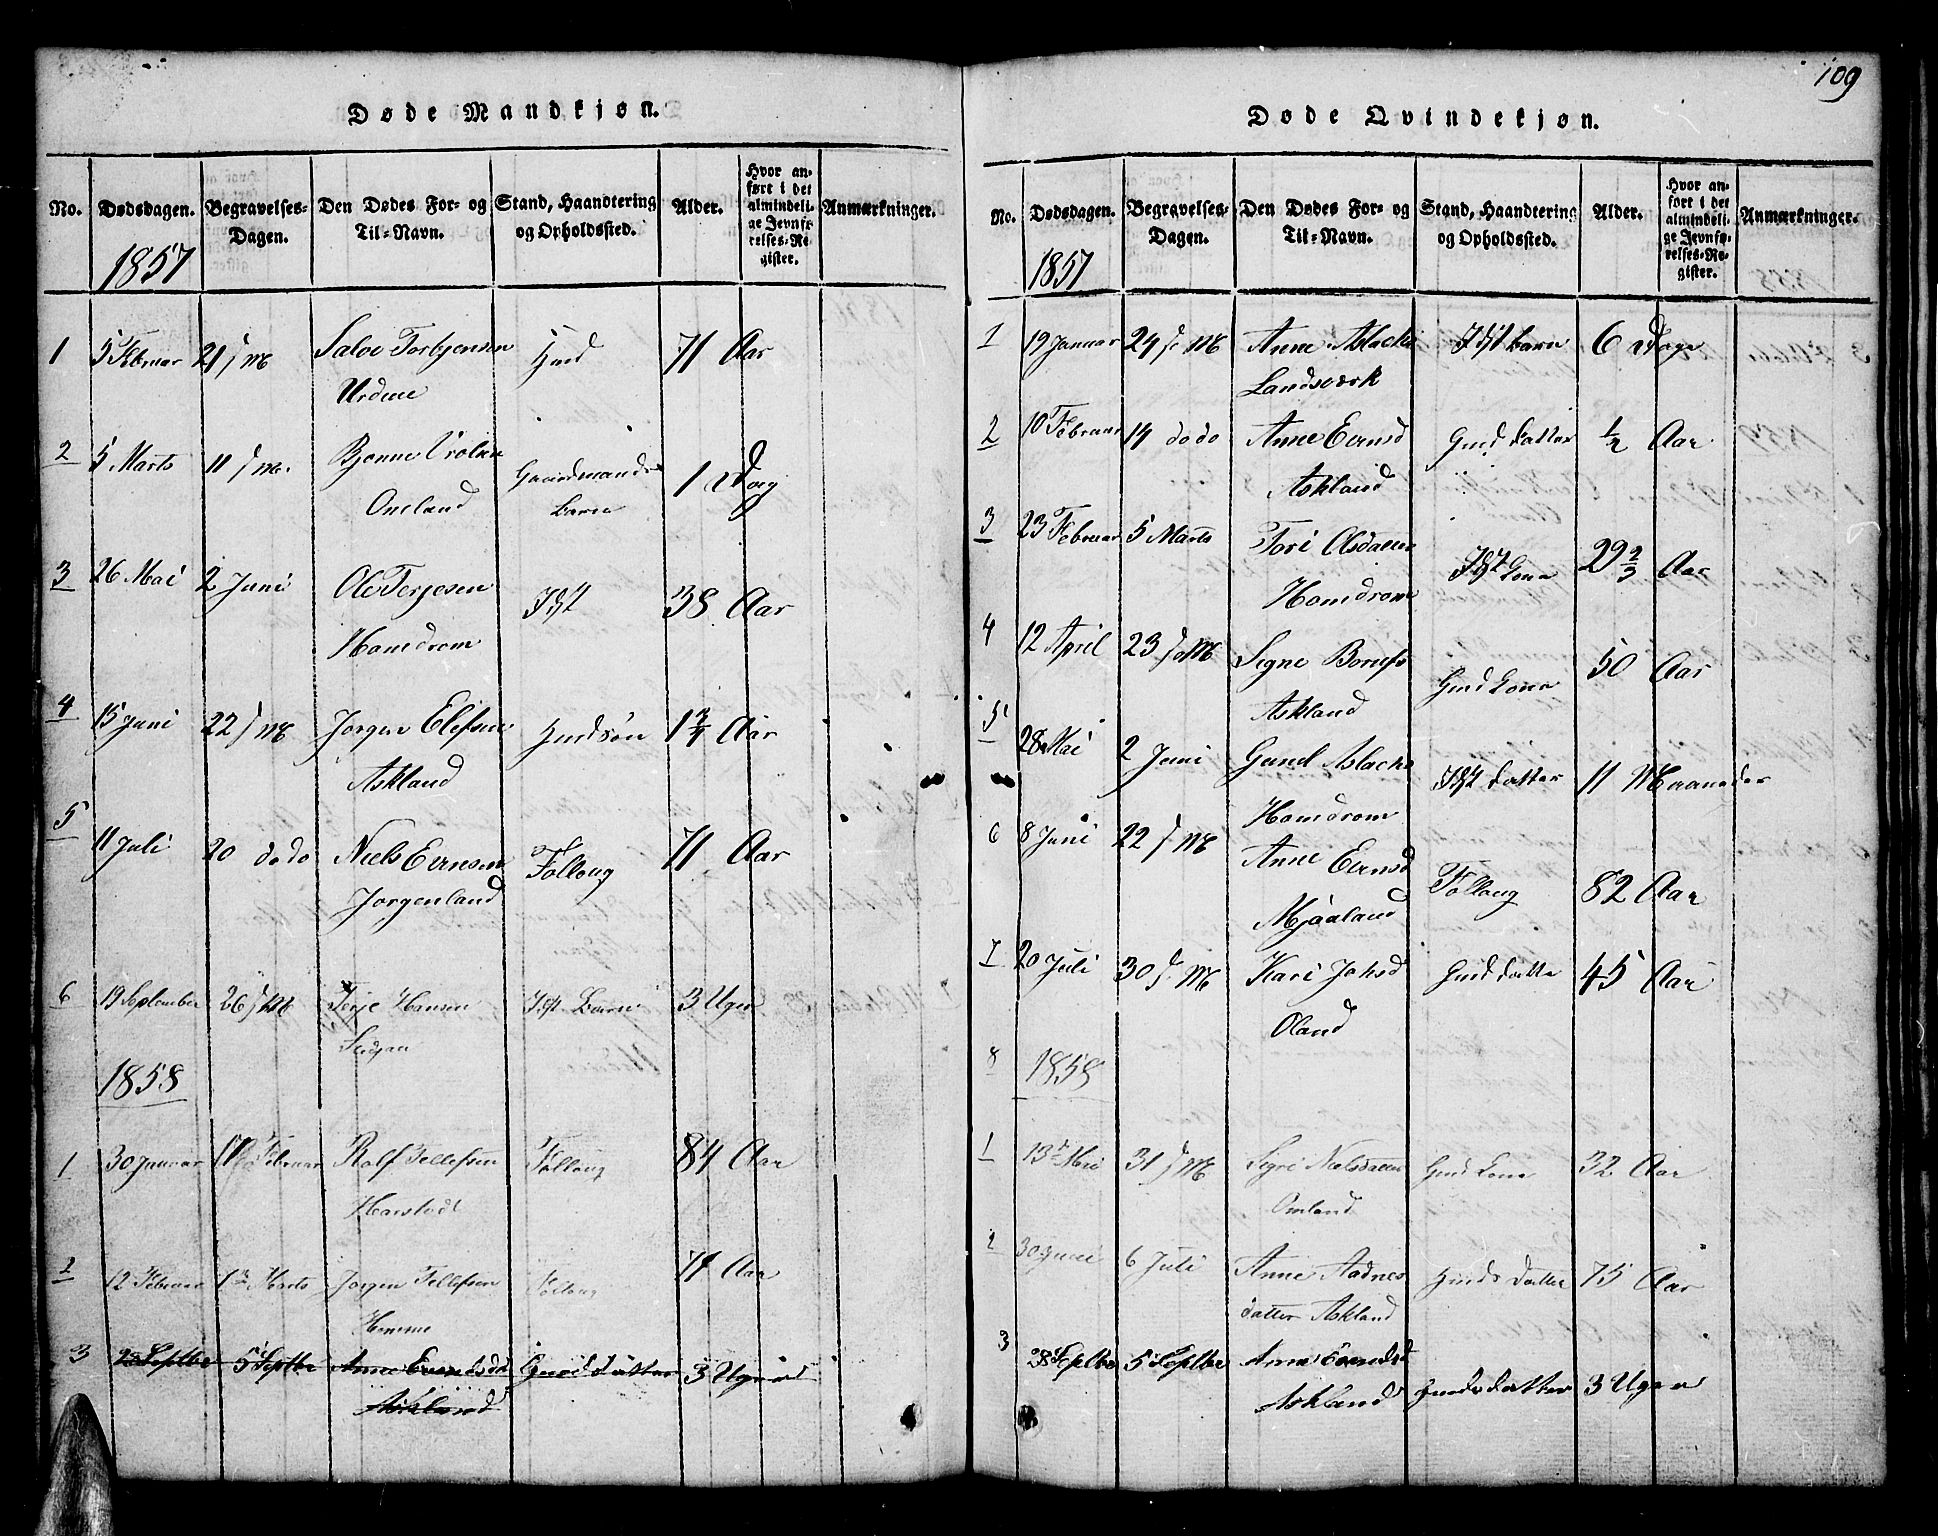 109
Døde Mandkjøn.
No. Dødsdagen. Begravelses-Dagen. Den Dødes For- og Til-Navn. Stand, Haandtering og Opholdssted. Alder. Hvor anført i det almindelige Jevnførelses-Register. Anmærkninger.
1857
1 5 Februar 21 d M Salve Torbjensen Gmd 71 Aar
Urdene
2 5 Marts 11 d M. Bjonne Omland Gaardmands Barn 1 Dag
3 26 Mai 2 Juni Ole Terjesen Inst 38 Aar
Homdrom
4 15 Juni 22 d M Jorgen Elefsen Gmdsön 1 3/4 Aar
Askland
5 11 Juli 20 do do Niels Evensen Follaug 71 Aar
Jorgenland
6 19 September 26 d M Terje Hansen Inst Barn 3 Uger
1858
1 30 Januar 17 Februar Rolf Tellefsen Follaug 84 Aar
Harstvedt
2 12 Februar 1 Marts Jorgen Tellefsen Follaug 71 Aar
3 28 Septbr 5 Septbr Anne Evendsdt Gmds datter 3 Uger
Askland
Døde Qvindekjøn.
No. Dødsdagen. Begravelses-Dagen. Den Dødes For- og Til-Navn. Stand, Haandtering og Opholdssted. Alder. Hvor anført i det almindelige Jevnførelses-Register. Anmærkninger.
1857
1 19 Januar 24 d M Anne Aslacks Inst barn 6 Dage
Landsværk
2 10 Februar 14 do do Anne Evensd Gmd datter 1/2 Aar
Askland
3 23 Februar 5 Marts Tori Olsdatter Inst Kone 29 2/3 Aar
Homdrom
4 12 April 23 d M Signe Gmd Kone 50 Aar
Askland
5 28 Mai 2 Juni Gund Aslacks Inst datter 11 Maaneder
Homdrom
6 8 Juni 22 d M Anne Evensd Follaug 82 Aar
Mjaaland
7 20 Juli 30 d M Kari Johsd Gmd datte 45 Aar
Oland
8 1858
1 13 Mai 31 d M Sigri Nielsdatter Gmd Kone 32 Aar
Omland
2 30 Juni 6 Juli Anne Aadnes Gmds datter 75 Aar
datter Askland
3 28 Septbr 5 Septbr Anne Evendsd Gmds datter 3 Uger
Askland